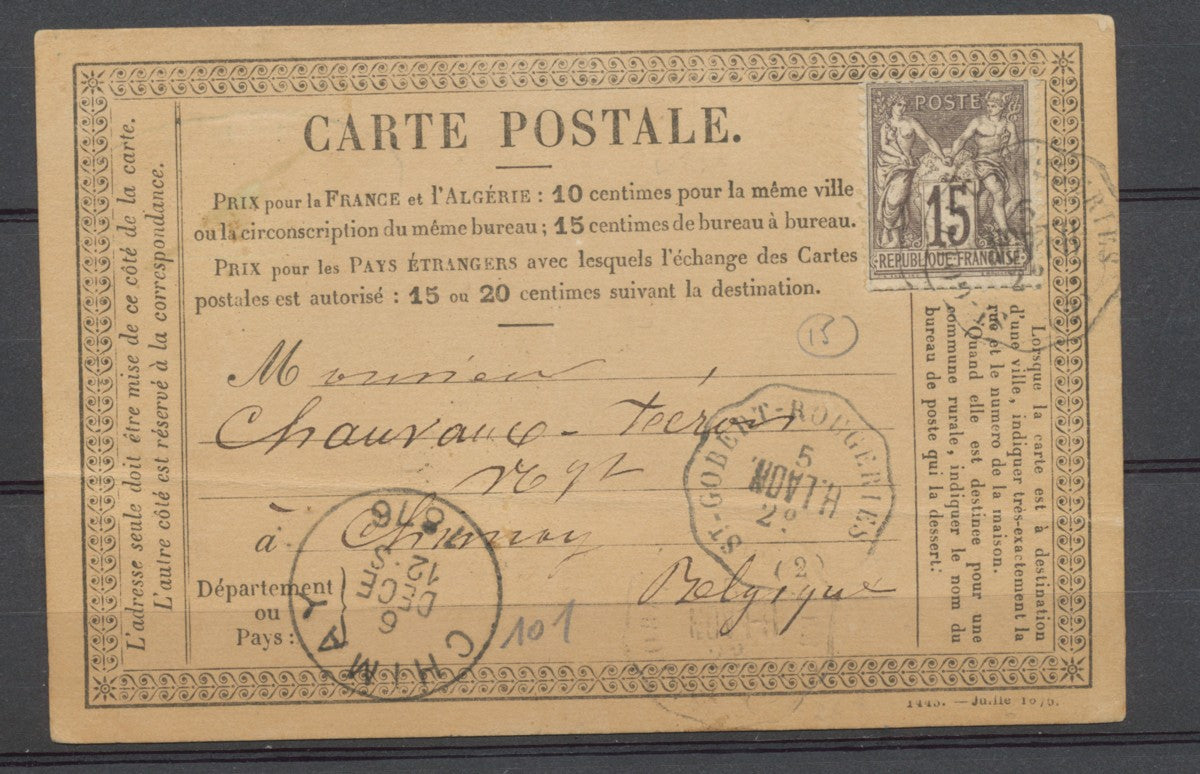 CARTE POSTALE.
PRIX pour la FRANCE et l'ALGÉRIE : 10 centimes pour la même ville
ou la circonscription du même bureau ; 15 centimes de bureau à bureau.
PRIX pour les PAYS ÉTRANGERS avec lesquels l'échange des Cartes
postales est autorisé : 15 ou 20 centimes suivant la destination.
L'adresse seule doit être mise de ce côté de la carte.
L'autre côté est réservé à la correspondance.
POSTE
15
REPUBLIQUE FRANÇAISE
Lorsque la carte est à destination
d'une ville, indiquer très-exactement la
rue et le numero de la maison.
Quand elle est destinée pour une
commune rurale, indiquer le nom du
bureau de poste qui la dessert:
15
Monsieur
Chauvaux-
à Chimay
Belgique
Département
ou
Pays :
ST-GOBERT-ROUGERIES
5
(2)
CHIMAY
1876
101
1443. — Juille 1875.